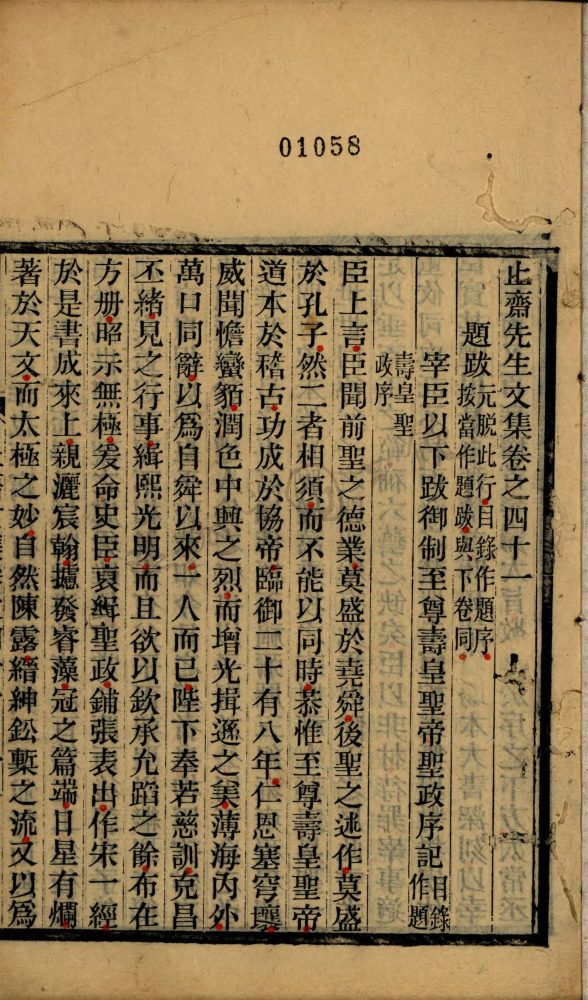 01058
止齋先生文集卷之四十一
題跋元脱此行目錄作題序按當作題跋與下卷同
宰臣以下跋御制至尊壽皇聖帝聖政序記目錄作題
壽皇聖政序
臣上言臣聞前聖之德業莫盛於堯舜後聖之述作莫盛
於孔子然二者相須而不能以同時恭惟至尊壽皇聖帝
道本於稽古功成於協帝臨御二十有八年仁恩塞穹壤
威聞憺蠻貊潤色中興之烈而增光揖遜之美薄海內外
萬口同辭以爲自舜以來一人而已陛下奉若慈訓克昌
丕緒見之行事緝熙光明而且欲以欽承允蹈之餘布在
方册昭示無極爰命史臣裒緝聖政鋪張表出作宋一經
於是書成來上親灑宸翰摅發睿藻冠之篇端日星有爛
著於天文而太極之妙自然陳露縉紳鈆槧之流又以爲